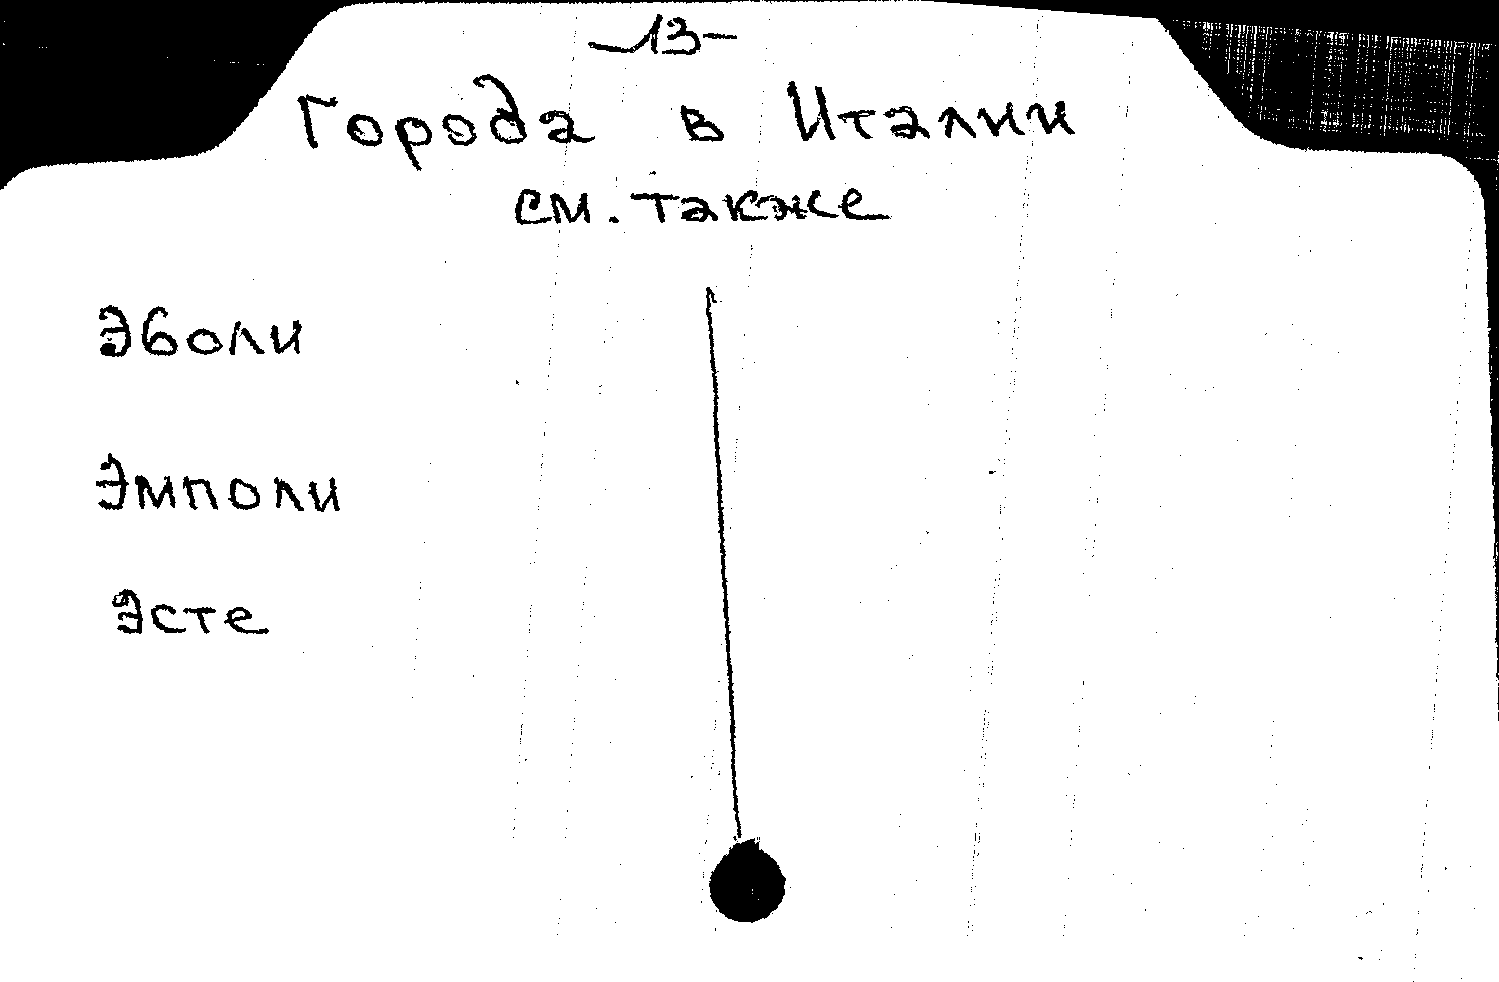 -13-
Города в Италии
см. также
Эболи
Эмполи
Эсте